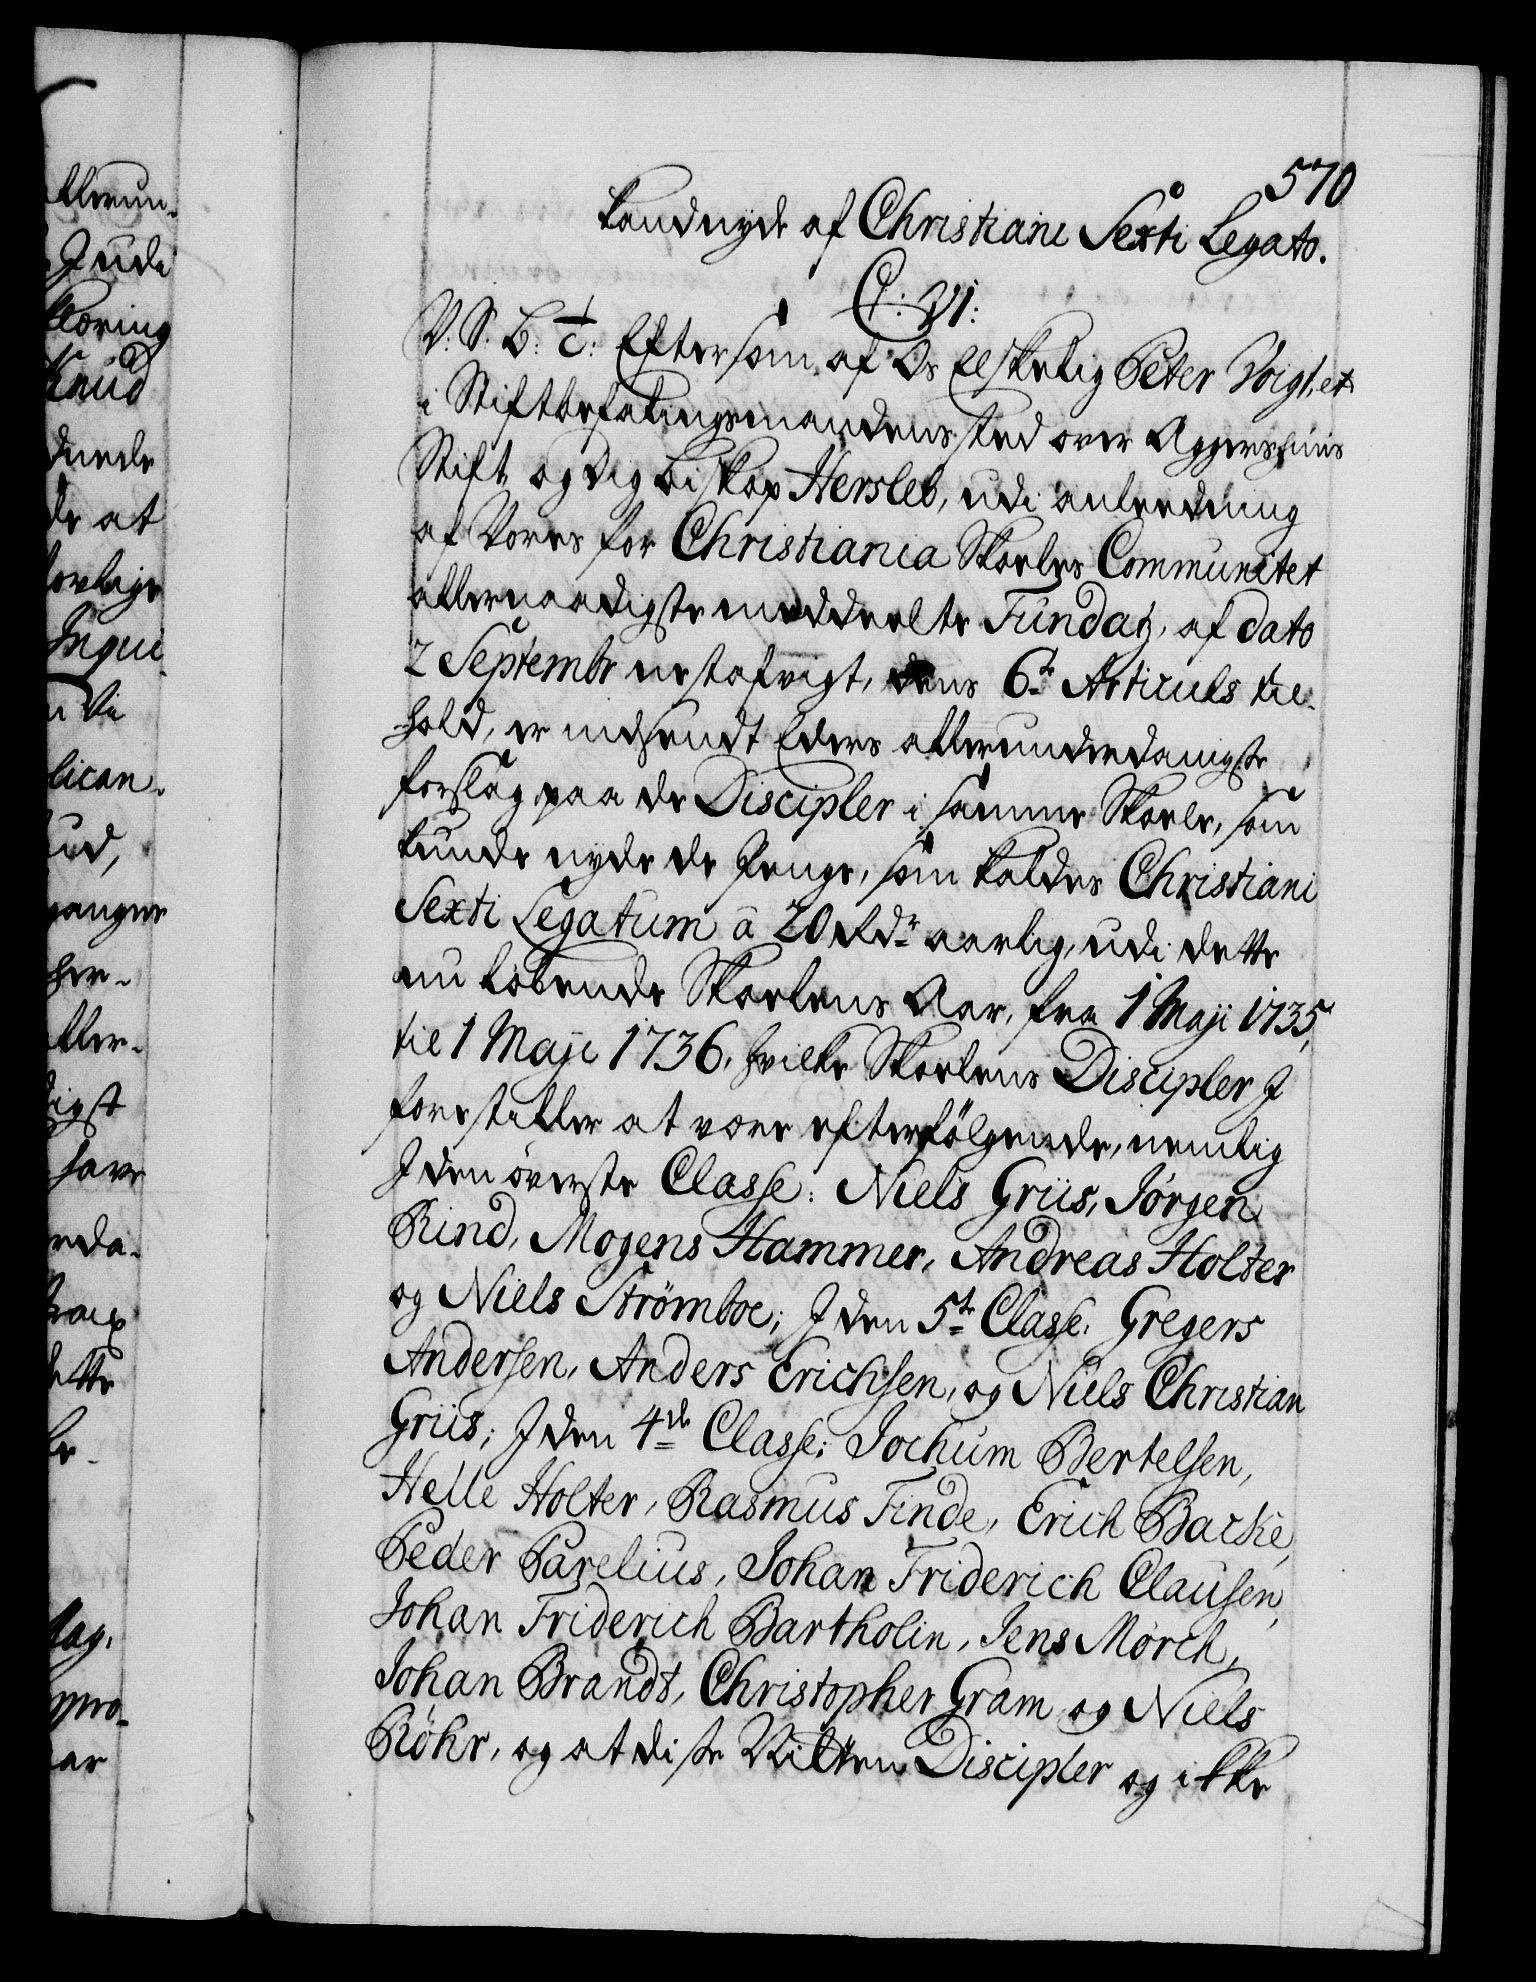 570
kand nyde af Christiani Sexti Legato.
C: VI:
V: S: B: &c: Eftersom af Os Elskelig Peter Vogt,
i Stiftbefalingsmandens sted over Aggershuus
Stift, og dig Biskop Hersleb, udi anleedning
af Vores for Christiania Skoeles Communitet
allernaadigste meddeelte Fundatz, af dato
2 Septembr nestafvigt, dens 6te Articuls til-
hold, er indsendt Eders allerunderdanigste
forslag paa de Discipler i samme Skoele, som
kunde nyde de Penge, som kaldes Christiani
Sexti Legatum â 20 Rdr aarlig, udi dette
nu løbende Skoelens Aar, fra 1 Maji 1735,
til 1 Maji 1736, hvilke Skoelens Discipler I
forestiller at være efterfølgende, nemlig
I den överste Classe: Niels Griis, Jørgen
Rind, Mogens Hammer, Andreas Holter
og Niels Strömboe; I den 5te Classe. Gregers
Andersen, Anders Erichsen, og Niels Christian
Griis; I den 4de Classe; Jochum Bertelsen,
Helle Holter, Rasmus Finde, Erich Backe,
Peder Parelius, Johan Friderich Clausen,
Johan Friderich Bartholin, Jens Mørch,
Johan Brandt, Christopher Gram og Niels
Röhr, og at disse Nitten Discipler og ikke